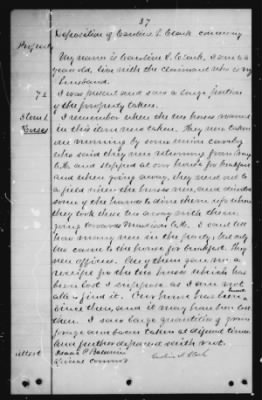 37
Deposition of Caroline S. Clark
Property
My name is Caroline S. Clark. I am
years old, live with the claimant who is my
husband.
72 I was present and saw a large portion
of the property taken.
I remember when the two horses named
in this item were taken. They were taken
in morning by some union cavalry
who said they were returning from
and stopped at our house for breakfast
and when going away, they went out to
a field where the horses were, and
some of the hands to drive them up when
they took these two away with them,
going towards Madison
how many men in the party. but only
came to the house for breakfast. They
were officers. One of them gave me a
receipt for the two horses which has
been lost I suppose as I am not
able to find it. Our house has been burned
since then, and it may have been lost
then. I saw large quantities of corn
forage and bacon taken at different times
and further deposeth saith not.
Attest
Caroline S. Clark